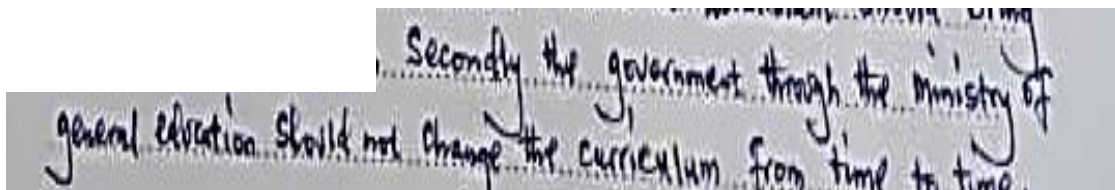 Secondly the government through the ministry of
general education should not change the curriculum from time to time